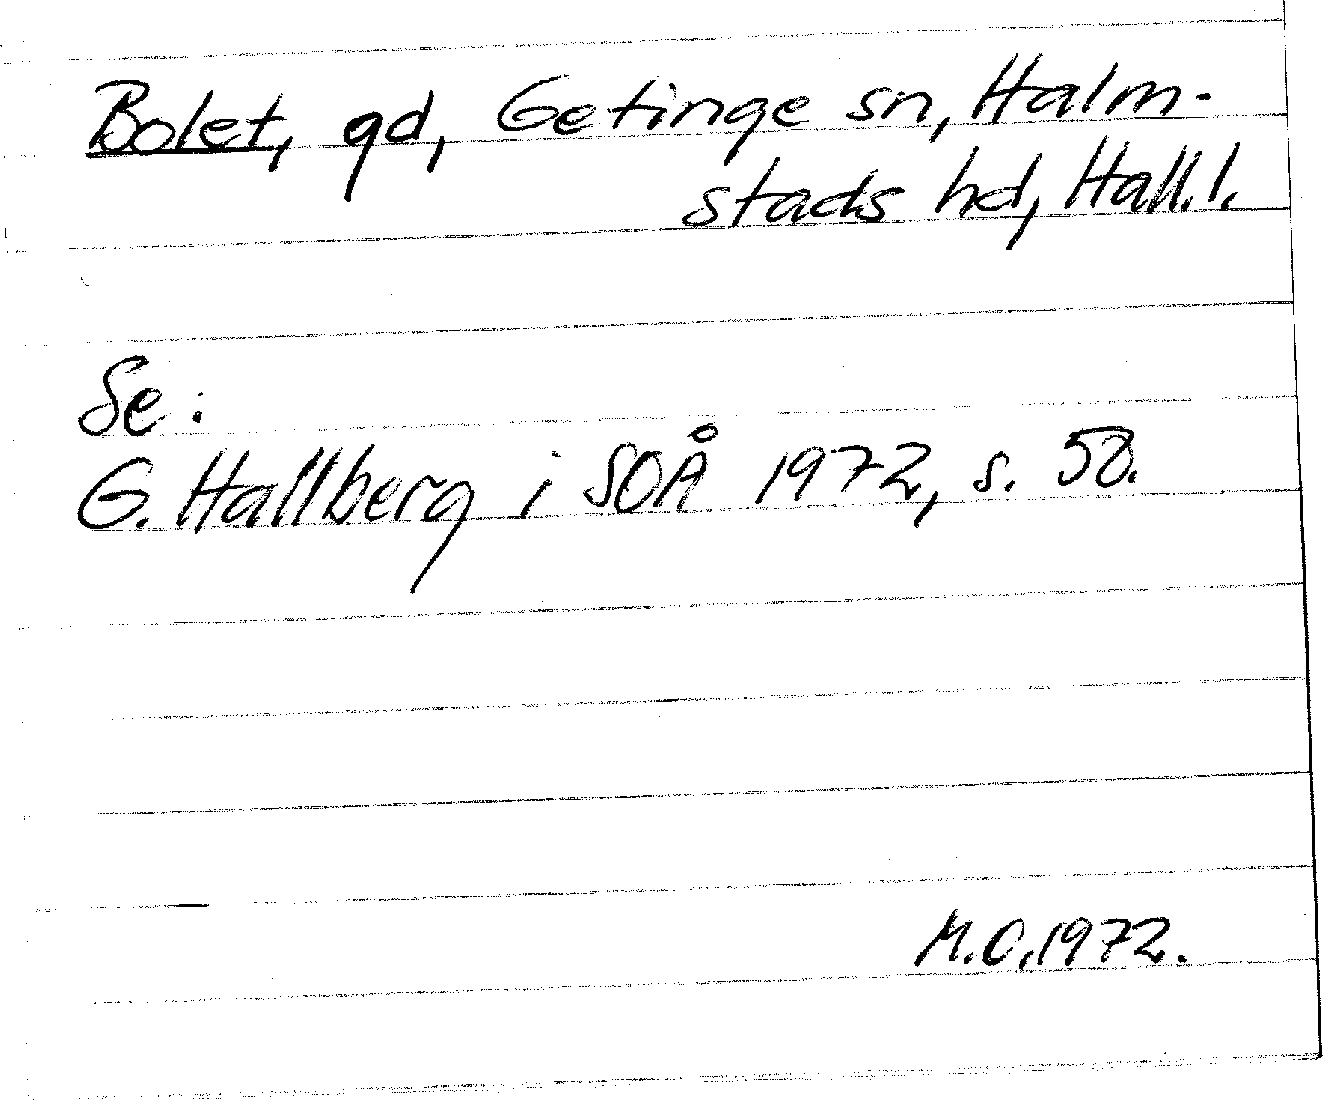 Bolet, gd, Getinge sn, Halm-
stads hd, Hall. l.
Se:
G. Hallberg i SOÅ 1972, s. 58.
M.O, 1972.